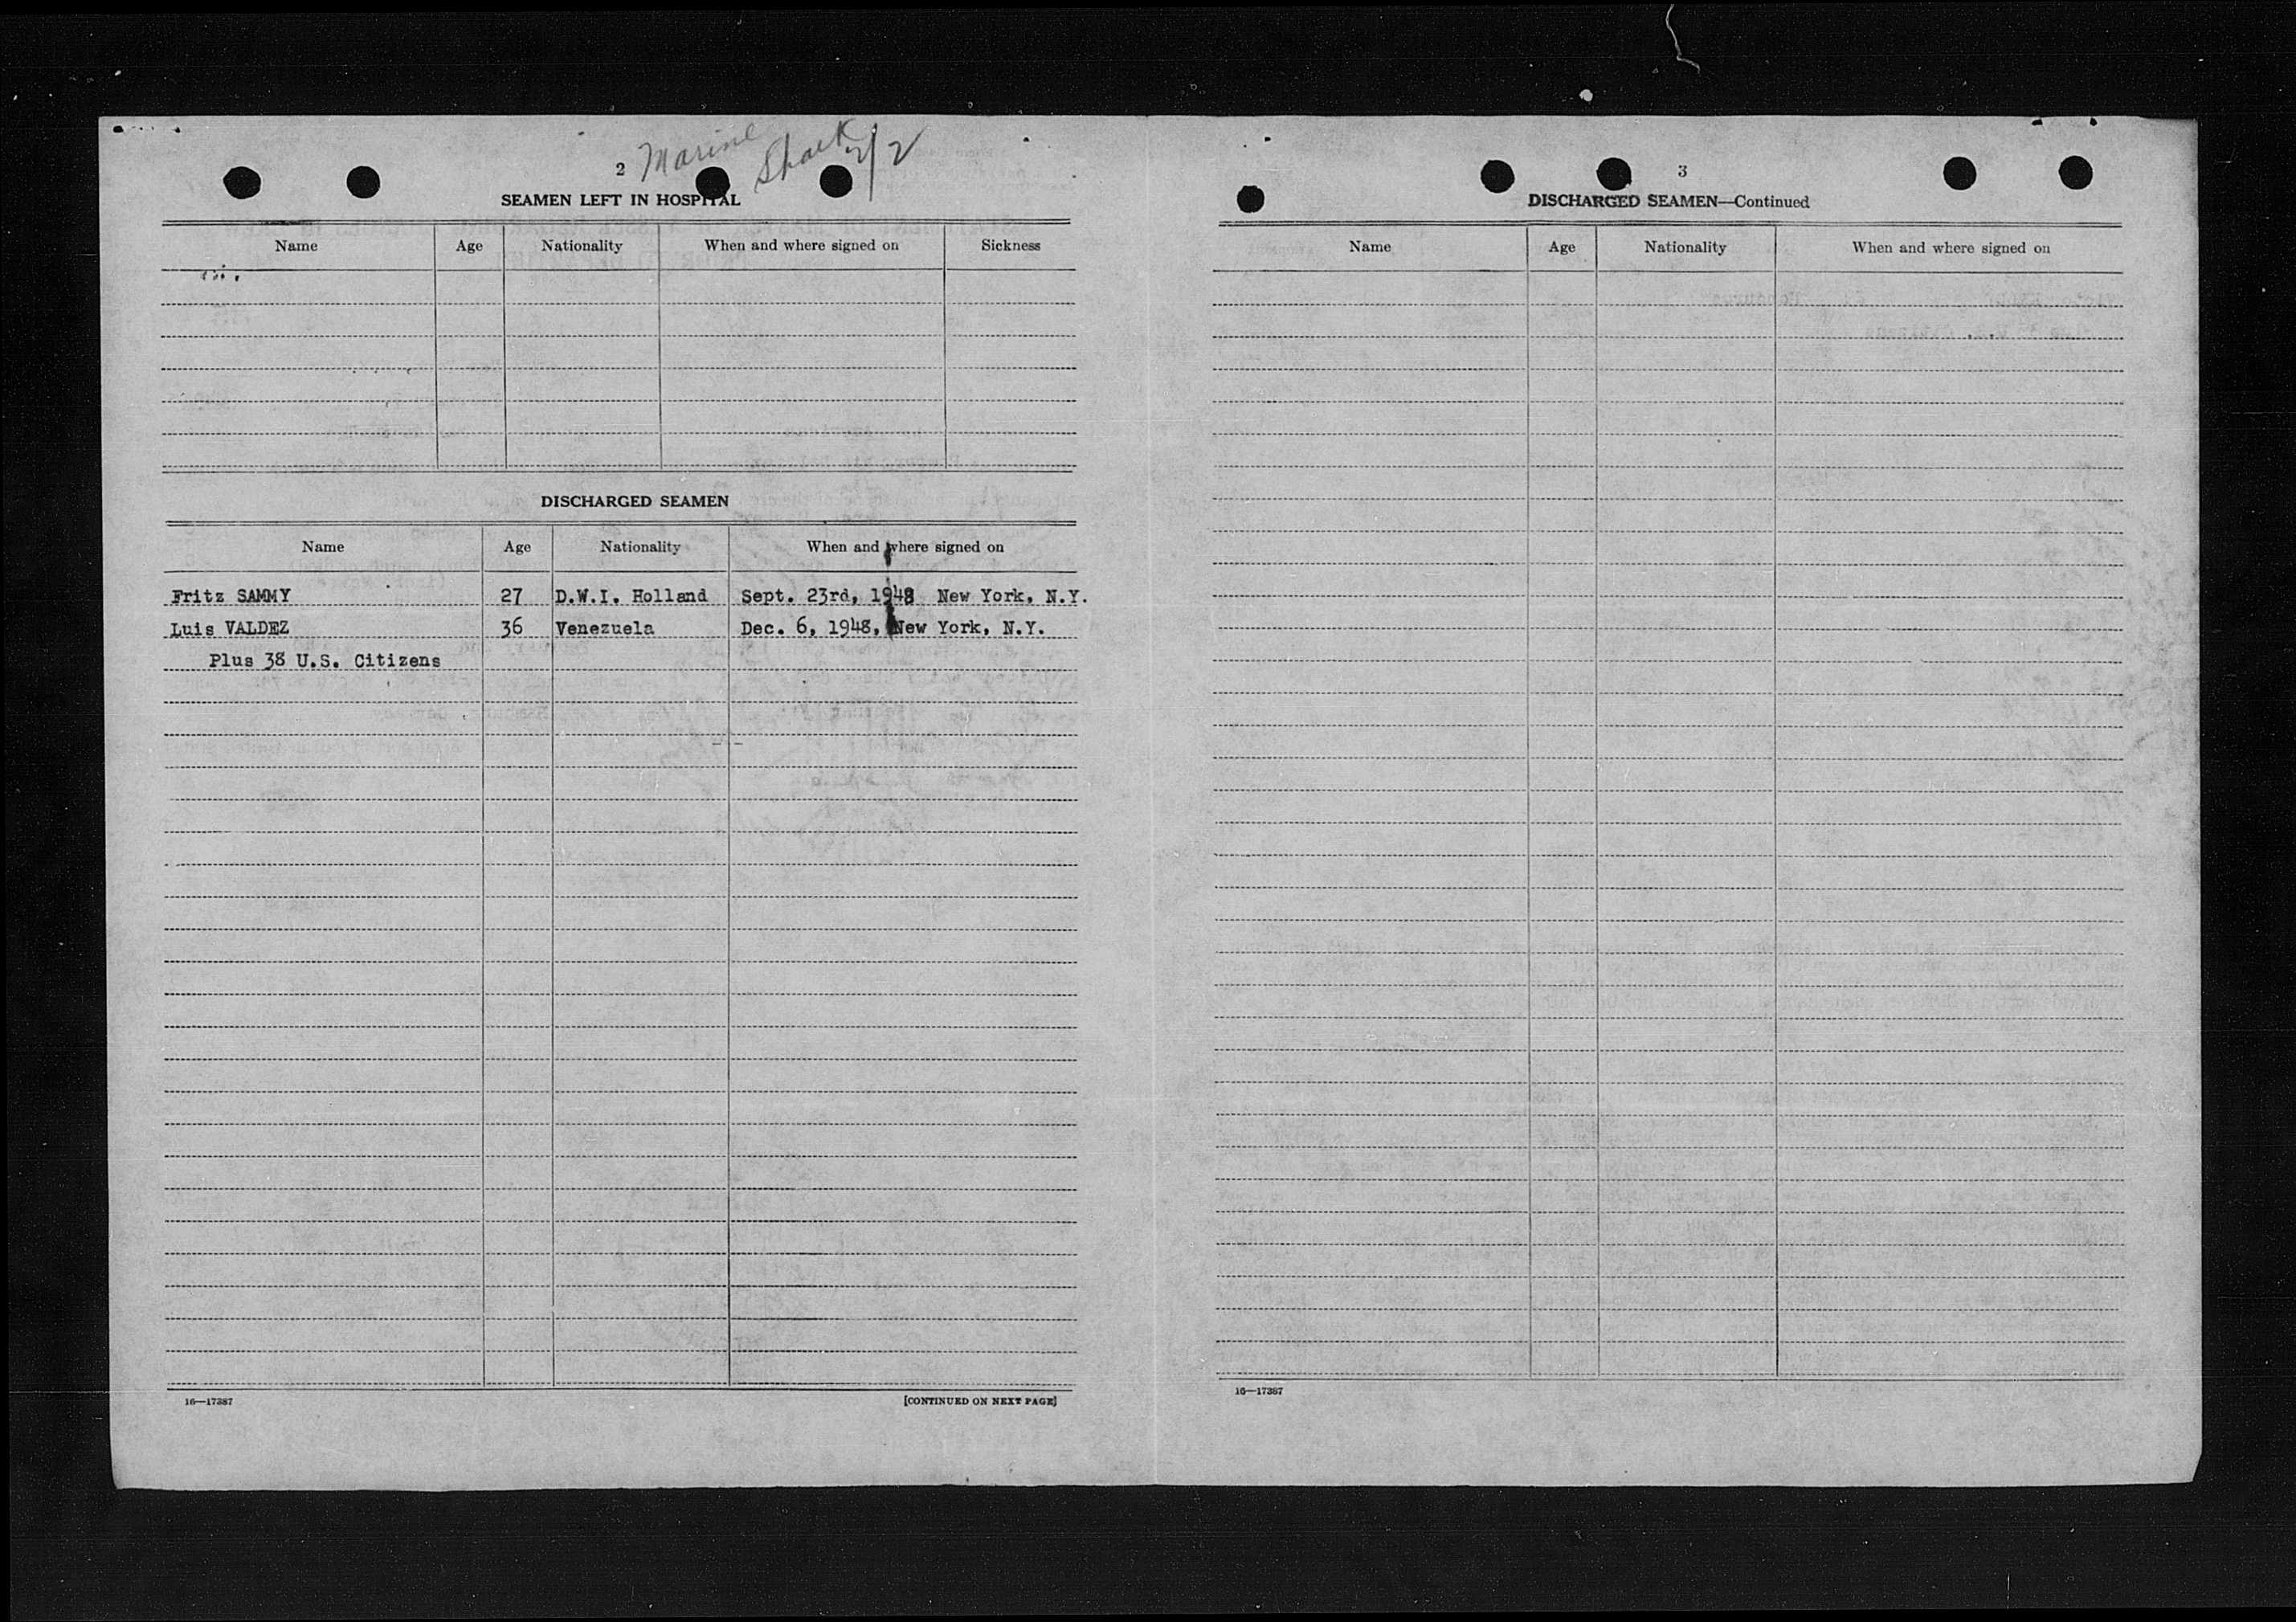 2 Marine Shark 2/2
SEAMEN LEFT IN HOSPITAL
Name Age Nationality When and where signed on Sickness
DISCHARGED SEAMEN
Name Age Nationality When and where signed on
Fritz SAMMY 27 D.W.I. Holland Sept. 23rd, 1948 New York, N.Y.
Luis VALDEZ 36 Venezuela Dec. 6, 1948, New York, N.Y.
Plus 38 U.S. Citizens
16—17387 [CONTINUED ON NEXT PAGE]
3
DISCHARGED SEAMEN—Continued
Name Age Nationality When and where signed on
16—17387